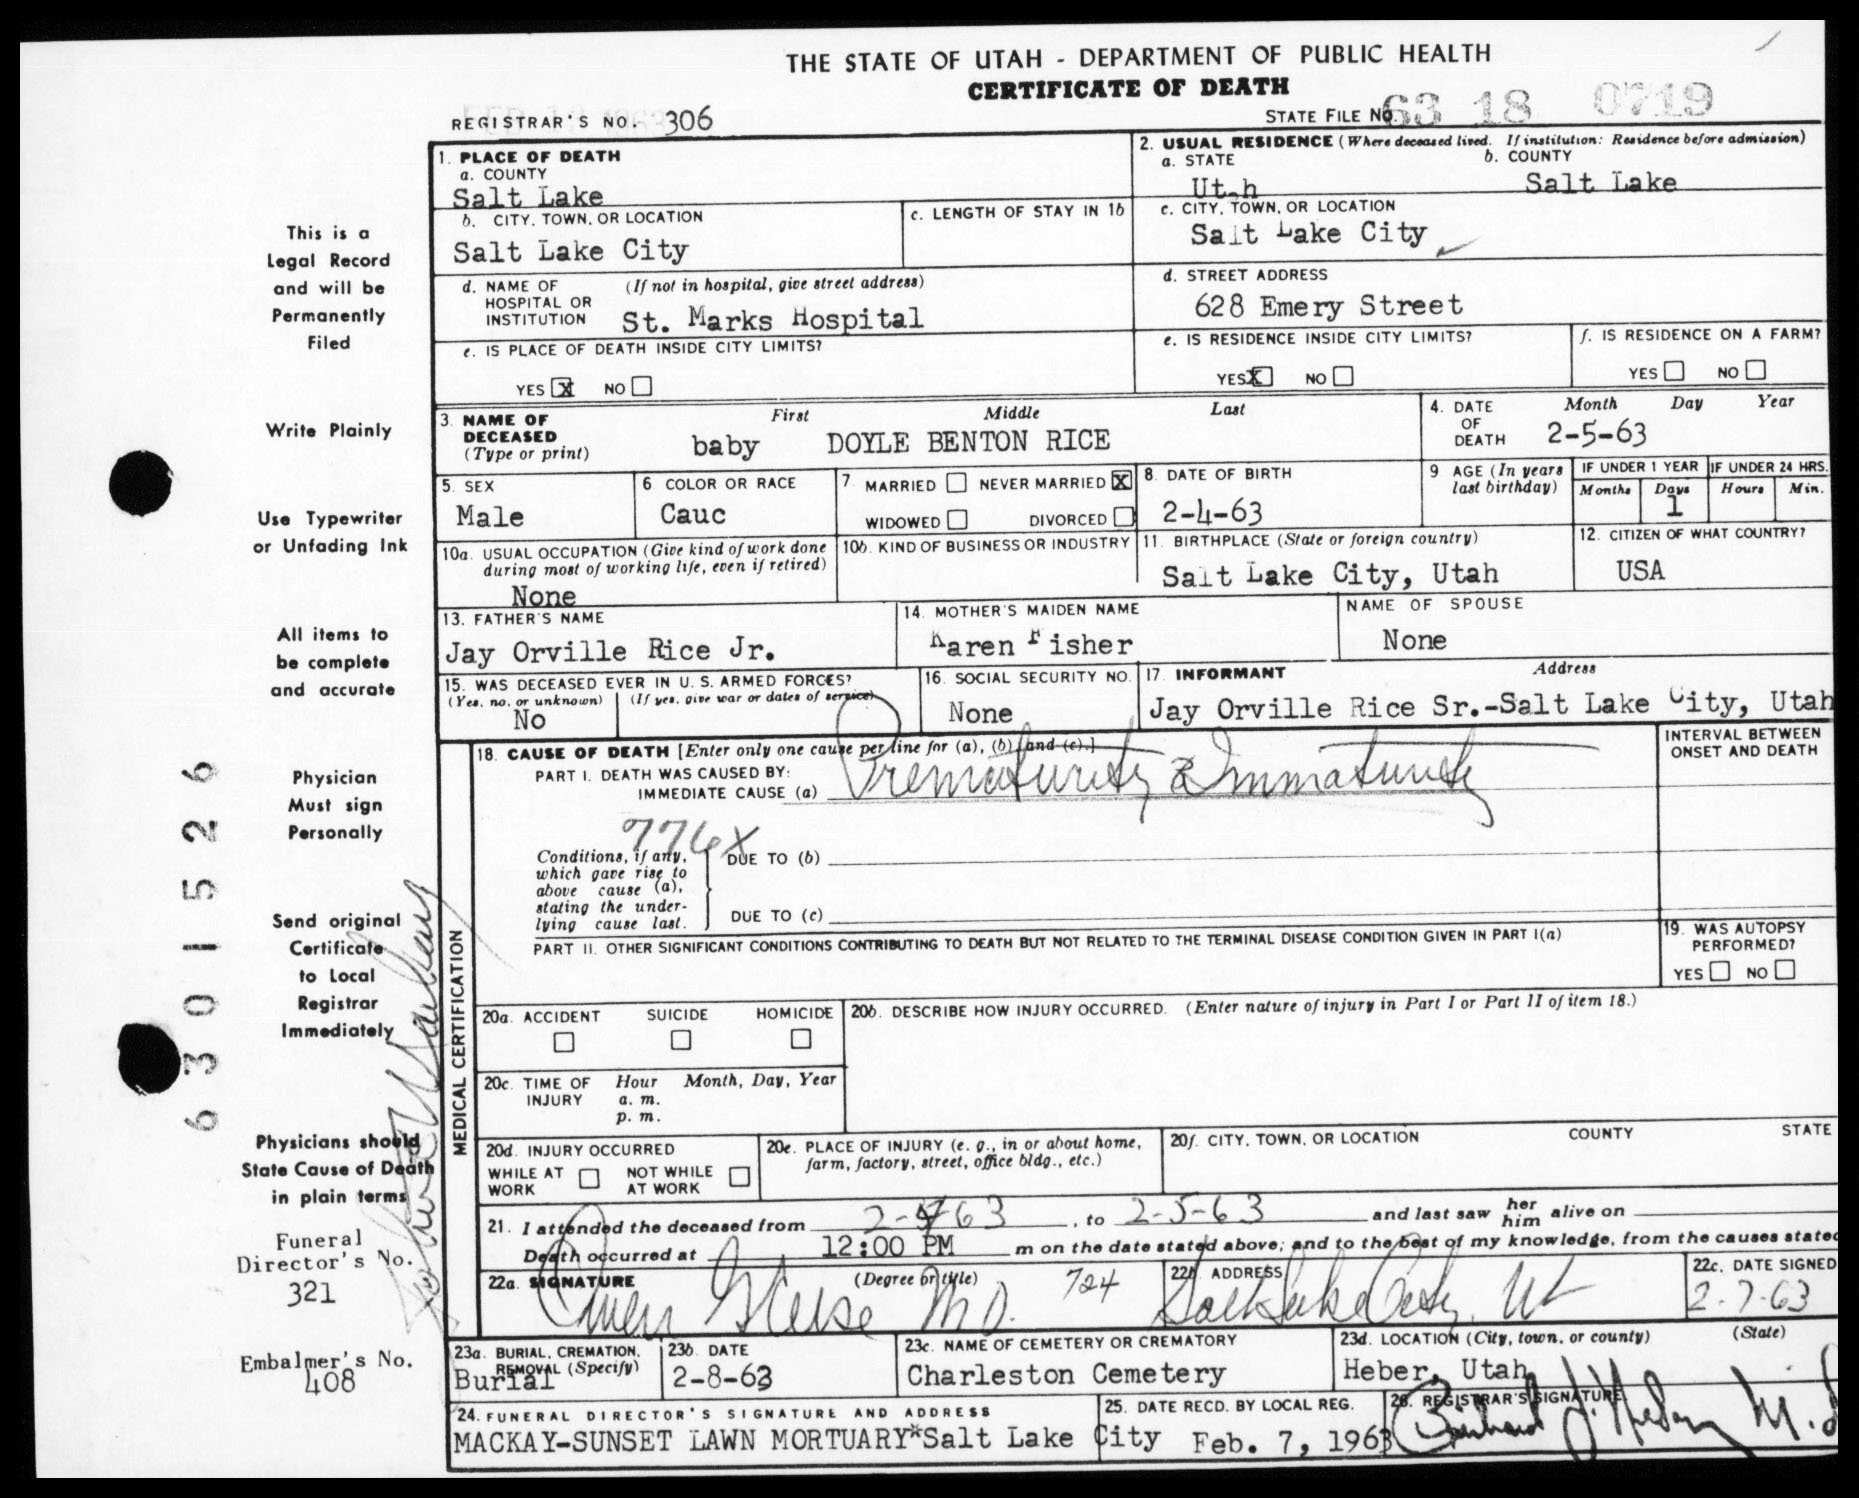 THE STATE OF UTAH - DEPARTMENT OF PUBLIC HEALTH
CERTIFICATE OF DEATH
REGISTRAR'S NO. 306
STATE FILE NO. 63 18 0719
1. PLACE OF DEATH
a. COUNTY
Salt Lake
b. CITY, TOWN, OR LOCATION
Salt Lake City
c. LENGTH OF STAY IN 1b
d. NAME OF HOSPITAL OR INSTITUTION (If not in hospital, give street address)
St. Marks Hospital
e. IS PLACE OF DEATH INSIDE CITY LIMITS?
YES X NO
2. USUAL RESIDENCE (Where deceased lived. If institution: Residence before admission)
a. STATE b. COUNTY
Ut h Salt Lake
c. CITY, TOWN, OR LOCATION
Salt Lake City
d. STREET ADDRESS
628 Emery Street
e. IS RESIDENCE INSIDE CITY LIMITS?
YES X NO
f. IS RESIDENCE ON A FARM?
YES NO
3. NAME OF DECEASED (Type or print) First Middle Last
baby DOYLE BENTON RICE
4. DATE OF DEATH Month Day Year
2-5-63
5. SEX
Male
6. COLOR OR RACE
Cauc
7. MARRIED NEVER MARRIED X
WIDOWED DIVORCED
8. DATE OF BIRTH
2-4-63
9 AGE (In years last birthday)
IF UNDER 1 YEAR IF UNDER 24 HRS.
Months Days Hours Min.
1
10a. USUAL OCCUPATION (Give kind of work done during most of working life, even if retired)
None
10b. KIND OF BUSINESS OR INDUSTRY
11. BIRTHPLACE (State or foreign country)
Salt Lake City, Utah
12. CITIZEN OF WHAT COUNTRY?
USA
13. FATHER'S NAME
Jay Orville Rice Jr.
14. MOTHER'S MAIDEN NAME
Karen Fisher
NAME OF SPOUSE
None
15. WAS DECEASED EVER IN U. S. ARMED FORCES?
(Yes, no, or unknown) (If yes, give war or dates of service)
No
16. SOCIAL SECURITY NO.
None
17. INFORMANT Address
Jay Orville Rice Sr.-Salt Lake City, Utah
MEDICAL CERTIFICATION
18. CAUSE OF DEATH [Enter only one cause per line for (a), (b) and (c).]
PART I. DEATH WAS CAUSED BY:
IMMEDIATE CAUSE (a) Prematurity & Immaturity
776X
Conditions, if any, which gave rise to above cause (a), stating the underlying cause last.
DUE TO (b)
DUE TO (c)
INTERVAL BETWEEN ONSET AND DEATH
PART II. OTHER SIGNIFICANT CONDITIONS CONTRIBUTING TO DEATH BUT NOT RELATED TO THE TERMINAL DISEASE CONDITION GIVEN IN PART I(a)
19. WAS AUTOPSY PERFORMED?
YES NO
20a. ACCIDENT SUICIDE HOMICIDE
20b. DESCRIBE HOW INJURY OCCURRED. (Enter nature of injury in Part I or Part II of item 18.)
20c. TIME OF INJURY Hour Month, Day, Year
a. m.
p. m.
20d. INJURY OCCURRED
WHILE AT WORK NOT WHILE AT WORK
20e. PLACE OF INJURY (e. g., in or about home, farm, factory, street, office bldg., etc.)
20f. CITY, TOWN, OR LOCATION COUNTY STATE
21. I attended the deceased from 2-4-63, to 2-5-63 and last saw her him alive on
Death occurred at 12:00 PM m on the date stated above; and to the best of my knowledge, from the causes stated
22a. SIGNATURE (Degree or title) 724
Owen M.D.
22b ADDRESS
Salt Lake City, Ut
22c. DATE SIGNED
2-7-63
23a. BURIAL, CREMATION, REMOVAL (Specify)
Burial
23b. DATE
2-8-63
23c. NAME OF CEMETERY OR CREMATORY
Charleston Cemetery
23d. LOCATION (City, town, or county) (State)
Heber, Utah
24. FUNERAL DIRECTOR'S SIGNATURE AND ADDRESS
MACKAY-SUNSET LAWN MORTUARY*Salt Lake City
25. DATE RECD. BY LOCAL REG.
Feb. 7, 1963
26. REGISTRAR'S SIGNATURE
M.D
This is a
Legal Record
and will be
Permanently
Filed
Write Plainly
Use Typewriter
or Unfading Ink
All items to
be complete
and accurate
Physician
Must sign
Personally
Send original
Certificate
to Local
Registrar
Immediately
Physicians should
State Cause of Death
in plain terms
Funeral
Director's No.
321
Embalmer's No.
408
6301526